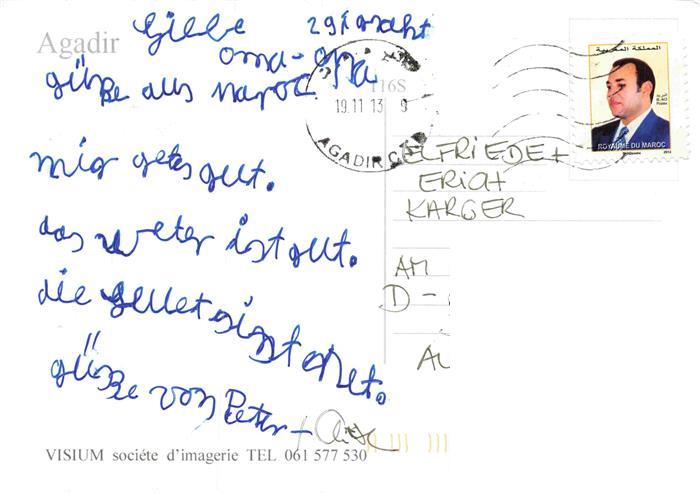 Agadir
oma-opa
grüße aus maroc
mir gets gut.
das weter ist gut.
die
grüße von Peter +
116S
19.11 13 9
AGADIR C
المملكة المغربية
ROYAUME DU MAROC
ELFRIEDE +
ERICH
KARGER
AM
D -
VISIUM sociéte d'imagerie TEL 061 577 530